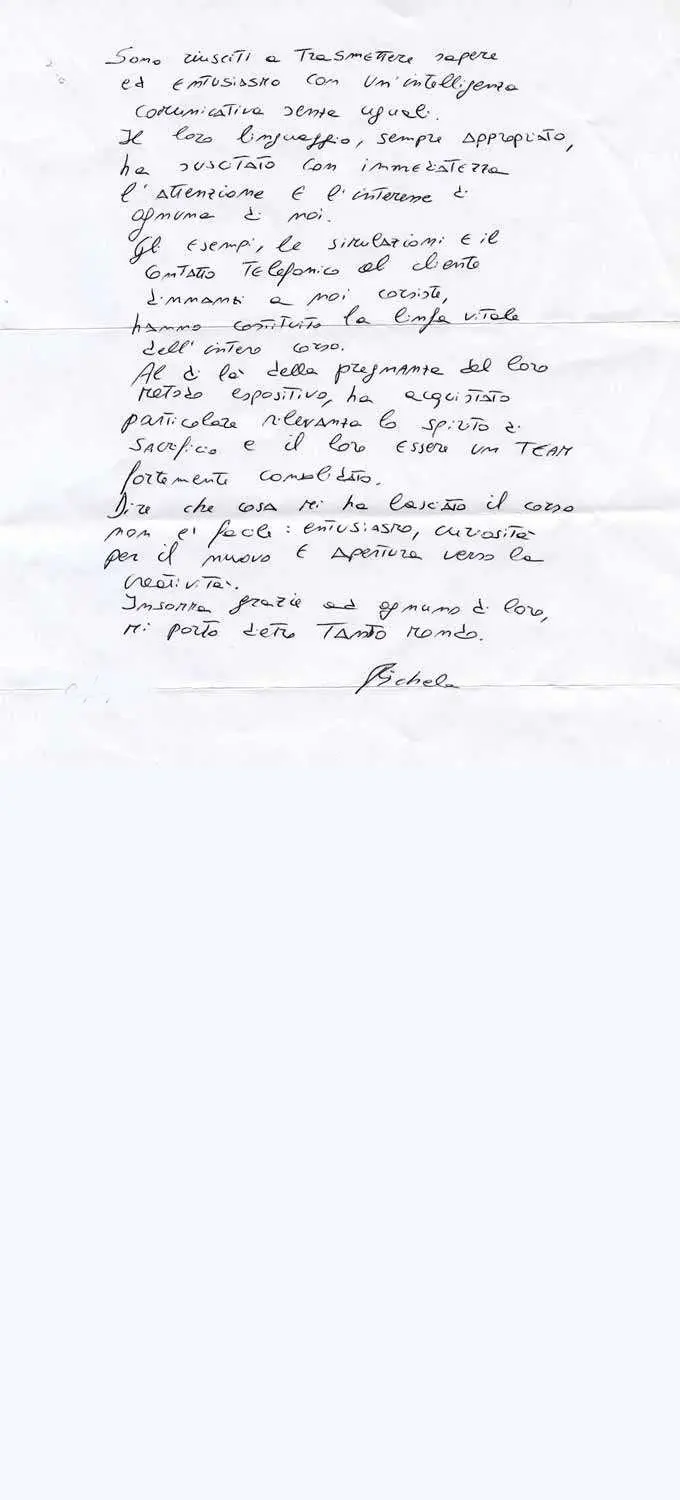 Sono riusciti a Trasmettere sapere
ed entusiasmo con un'intelligenza
comunicativa senza uguali.
Il loro linguaggio, sempre appropiato,
ha suscitato con immediatezza
l'attenzione e l'interesse di
ognuna di noi.
Gli esempi, le simulazioni e il
contatto telefonico al cliente
dinnanzi a noi corsiste,
hanno costituito la linfa vitale
dell'intero corso.
Al di là della pregnanza del loro
metodo espositivo, ha acquistato
particolare rilevanza lo spirito di
sacrificio e il loro essere un TEAM
fortemente consolidato.
Dire che cosa mi ha lasciato il corso
non e' facile: entusiasmo, curiosità
per il nuovo e apertura verso la
creatività.
Insomma grazie ad ognuno di loro,
mi porto detro tanto mondo.
Michela